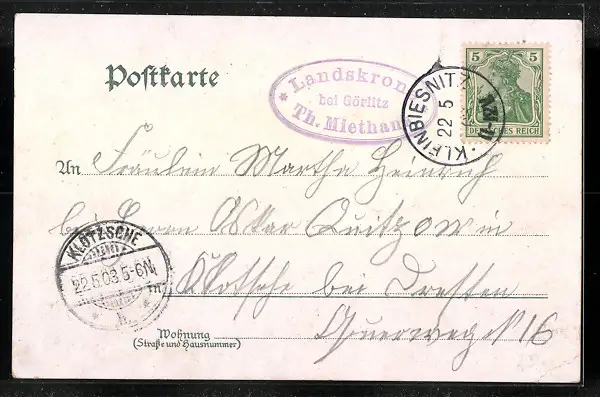 Postkarte
* Landskron
bei Görlitz
Th. Mietha
KLEINBIESNITZ
22 5
5 5
DEUTSCHES REICH
An Fräulein Martha Heinrich
bei Herrn Oskar Quitzow in
KLOTZSCHE
22.5.03.5-6N.
* h. *
in Klotsche bei Dresden
Querweg N 16
Wohnung
(Straße und Hausnummer)